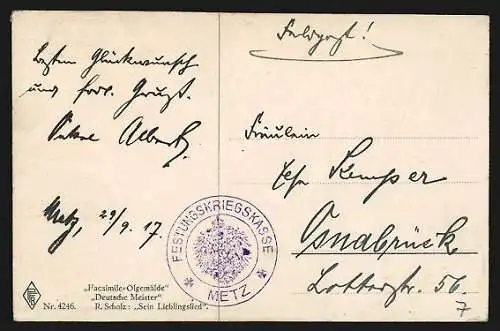 Feldpost!
besten Glückwunsch
und frdl. Gruß.
Onkel Albert.
Metz, 29/9.17.
Fräulein
Kemper
Osnabrück
Lotterstr. 56.
7
FESTUNGSKRIEGSKASSE
METZ
„Facsimile-Olgemälde"
„Deutsche Meister"
Nr. 4246. R. Scholz: „Sein Lieblingslied".